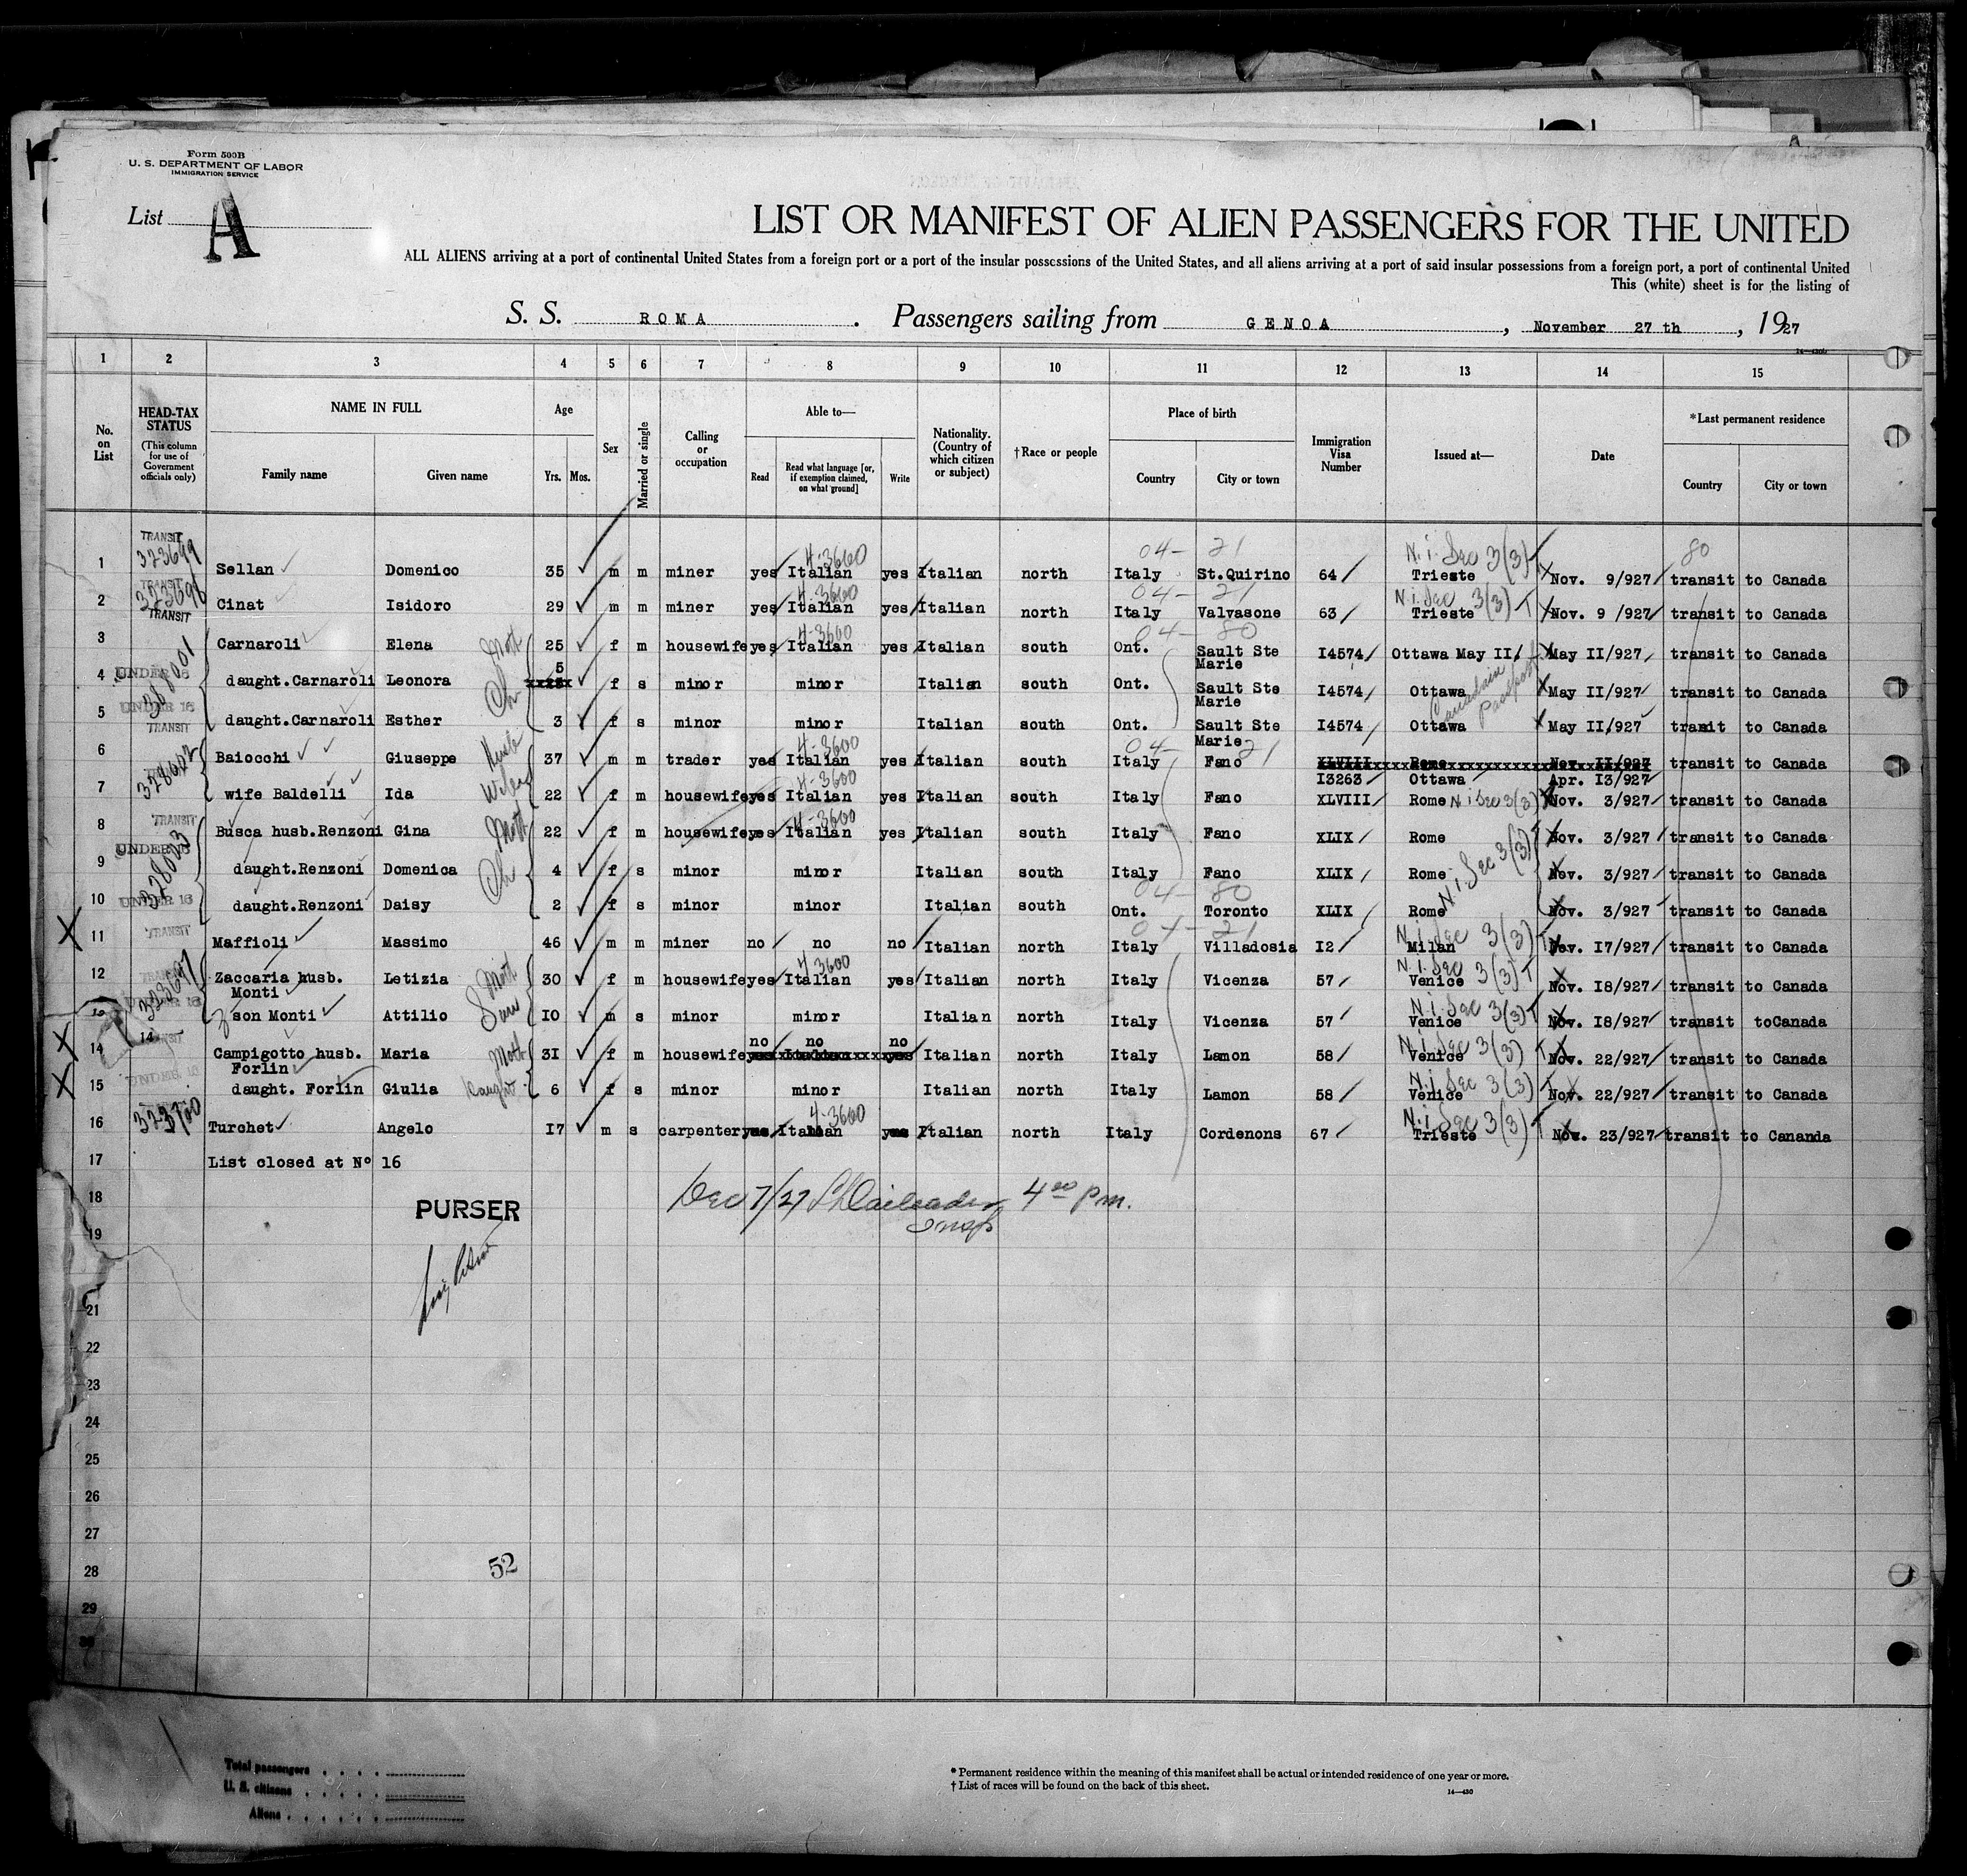 Form 500B
U. S. DEPARTMENT OF LABOR
IMMIGRATION SERVICE
List A
LIST OR MANIFEST OF ALIEN PASSENGERS FOR THE UNITED
ALL ALIENS arriving at a port of continental United States from a foreign port or a port of the insular possessions of the United States, and all aliens arriving at a port of said insular possessions from a foreign port, a port of continental United
This (white) sheet is for the listing of
S. S. ROMA. Passengers sailing from GENOA, November 27 th, 1927
1 2 3 4 5 6 7 8 9 10 11 12 13 14 15
No. on List
HEAD-TAX STATUS (This column for use of Government officials only)
NAME IN FULL Family name Given name
Age Yrs. Mos.
Sex
Married or single
Calling or occupation
Able to— Read Read what language [or, if exemption claimed, on what ground] Write
Nationality. (Country of which citizen or subject)
†Race or people
Place of birth Country City or town
Immigration Visa Number
Issued at—
Date
*Last permanent residence Country City or town
TRANSIT 04- 21 N.i. Sec 3(3) 80
1 323699 Sellan Domenico 35 m m miner yes Italian 4-3600 yes Italian north Italy St.Quirino 64 Trieste Nov. 9/927 transit to Canada
TRANSIT 04- 21 N.i. Sec 3(3) T
2 323696 Cinat Isidoro 29 m m miner yes Italian 4-3600 yes Italian north Italy Valvasone 63 Trieste Nov. 9 /927 transit to Canada
TRANSIT 04- 80
3 Carnaroli Elena Moth 25 f m housewife yes Italian 4-3600 yes Italian south Ont. Sault Ste Marie I4574 Ottawa May II/ May II/927 transit to Canada
4 UNDER 16 daught.Carnaroli Leonora Ch 5 f s minor minor Italian south Ont. Sault Ste Marie I4574 Ottawa May II/927 transit to Canada
Canadian Passport
5 UNDER 16 daught.Carnaroli Esther 3 f s minor minor Italian south Ont. Sault Ste Marie I4574 Ottawa May II/927 transit to Canada
TRANSIT 04- 21
6 Baiocchi Giuseppe Husb 37 m m trader yes Italian 4-3600 yes Italian south Italy Fano XLVIII Rome Nov. II/927 transit to Canada
I3263 Ottawa Apr. I3/927
7 328602 wife Baldelli Ida Wife 22 f m housewife yes Italian 4-3600 yes Italian south Italy Fano XLVIII Rome N.i Sec 3(3) Nov. 3/927 transit to Canada
8 TRANSIT Busca husb.Renzoni Gina Moth 22 f m housewife yes Italian 4-3600 yes Italian south Italy Fano XLIX Rome Nov. 3/927 transit to Canada
9 UNDER 16 daught.Renzoni Domenica Ch 4 f s minor minor Italian south Italy Fano XLIX Rome N.i. Sec 3(3) Nov. 3/927 transit to Canada
04- 80
10 UNDER 16 daught.Renzoni Daisy 2 f s minor minor Italian south Ont. Toronto XLIX Rome Nov. 3/927 transit to Canada
04- 21 N.i. Sec 3(3) T
11 TRANSIT Maffioli Massimo 46 m m miner no no no Italian north Italy Villadosia I2 Milan Nov. I7/927 transit to Canada
N.i. Sec 3(3) T
12 323697 Zaccaria husb. Monti Letizia Moth 30 f m housewife yes Italian 4 3600 yes Italian north Italy Vicenza 57 Venice Nov. I8/927 transit to Canada
N.i. Sec 3(3) T
son Monti Attilio Son IO m s minor minor Italian north Italy Vicenza 57 Venice Nov. I8/927 transit toCanada
14 N.i. Sec 3(3) T
14 Campigotto husb. Forlin Maria Moth 3I f m housewife no no no Italian north Italy Lamon 58 Venice Nov. 22/927 transit to Canada
N.i. Sec 3(3) T
15 UNDER 16 daught. Forlin Giulia Daught 6 f s minor minor Italian north Italy Lamon 58 Venice Nov. 22/927 transit to Canada
N.i. Sec 3(3) T
16 323700 Turchet Angelo I7 m s carpenter yes Italian 4-3600 yes Italian north Italy Cordenons 67 Trieste Nov. 23/927 transit to Cananda
17 List closed at Nº 16
18 PURSER Dec 7/27 4⁰⁰ Pm.
19
21
22
23
24
25
26
27
28 52
29
30
Total passengers
U. S. citizens
Aliens
* Permanent residence within the meaning of this manifest shall be actual or intended residence of one year or more.
† List of races will be found on the back of this sheet.
14—430